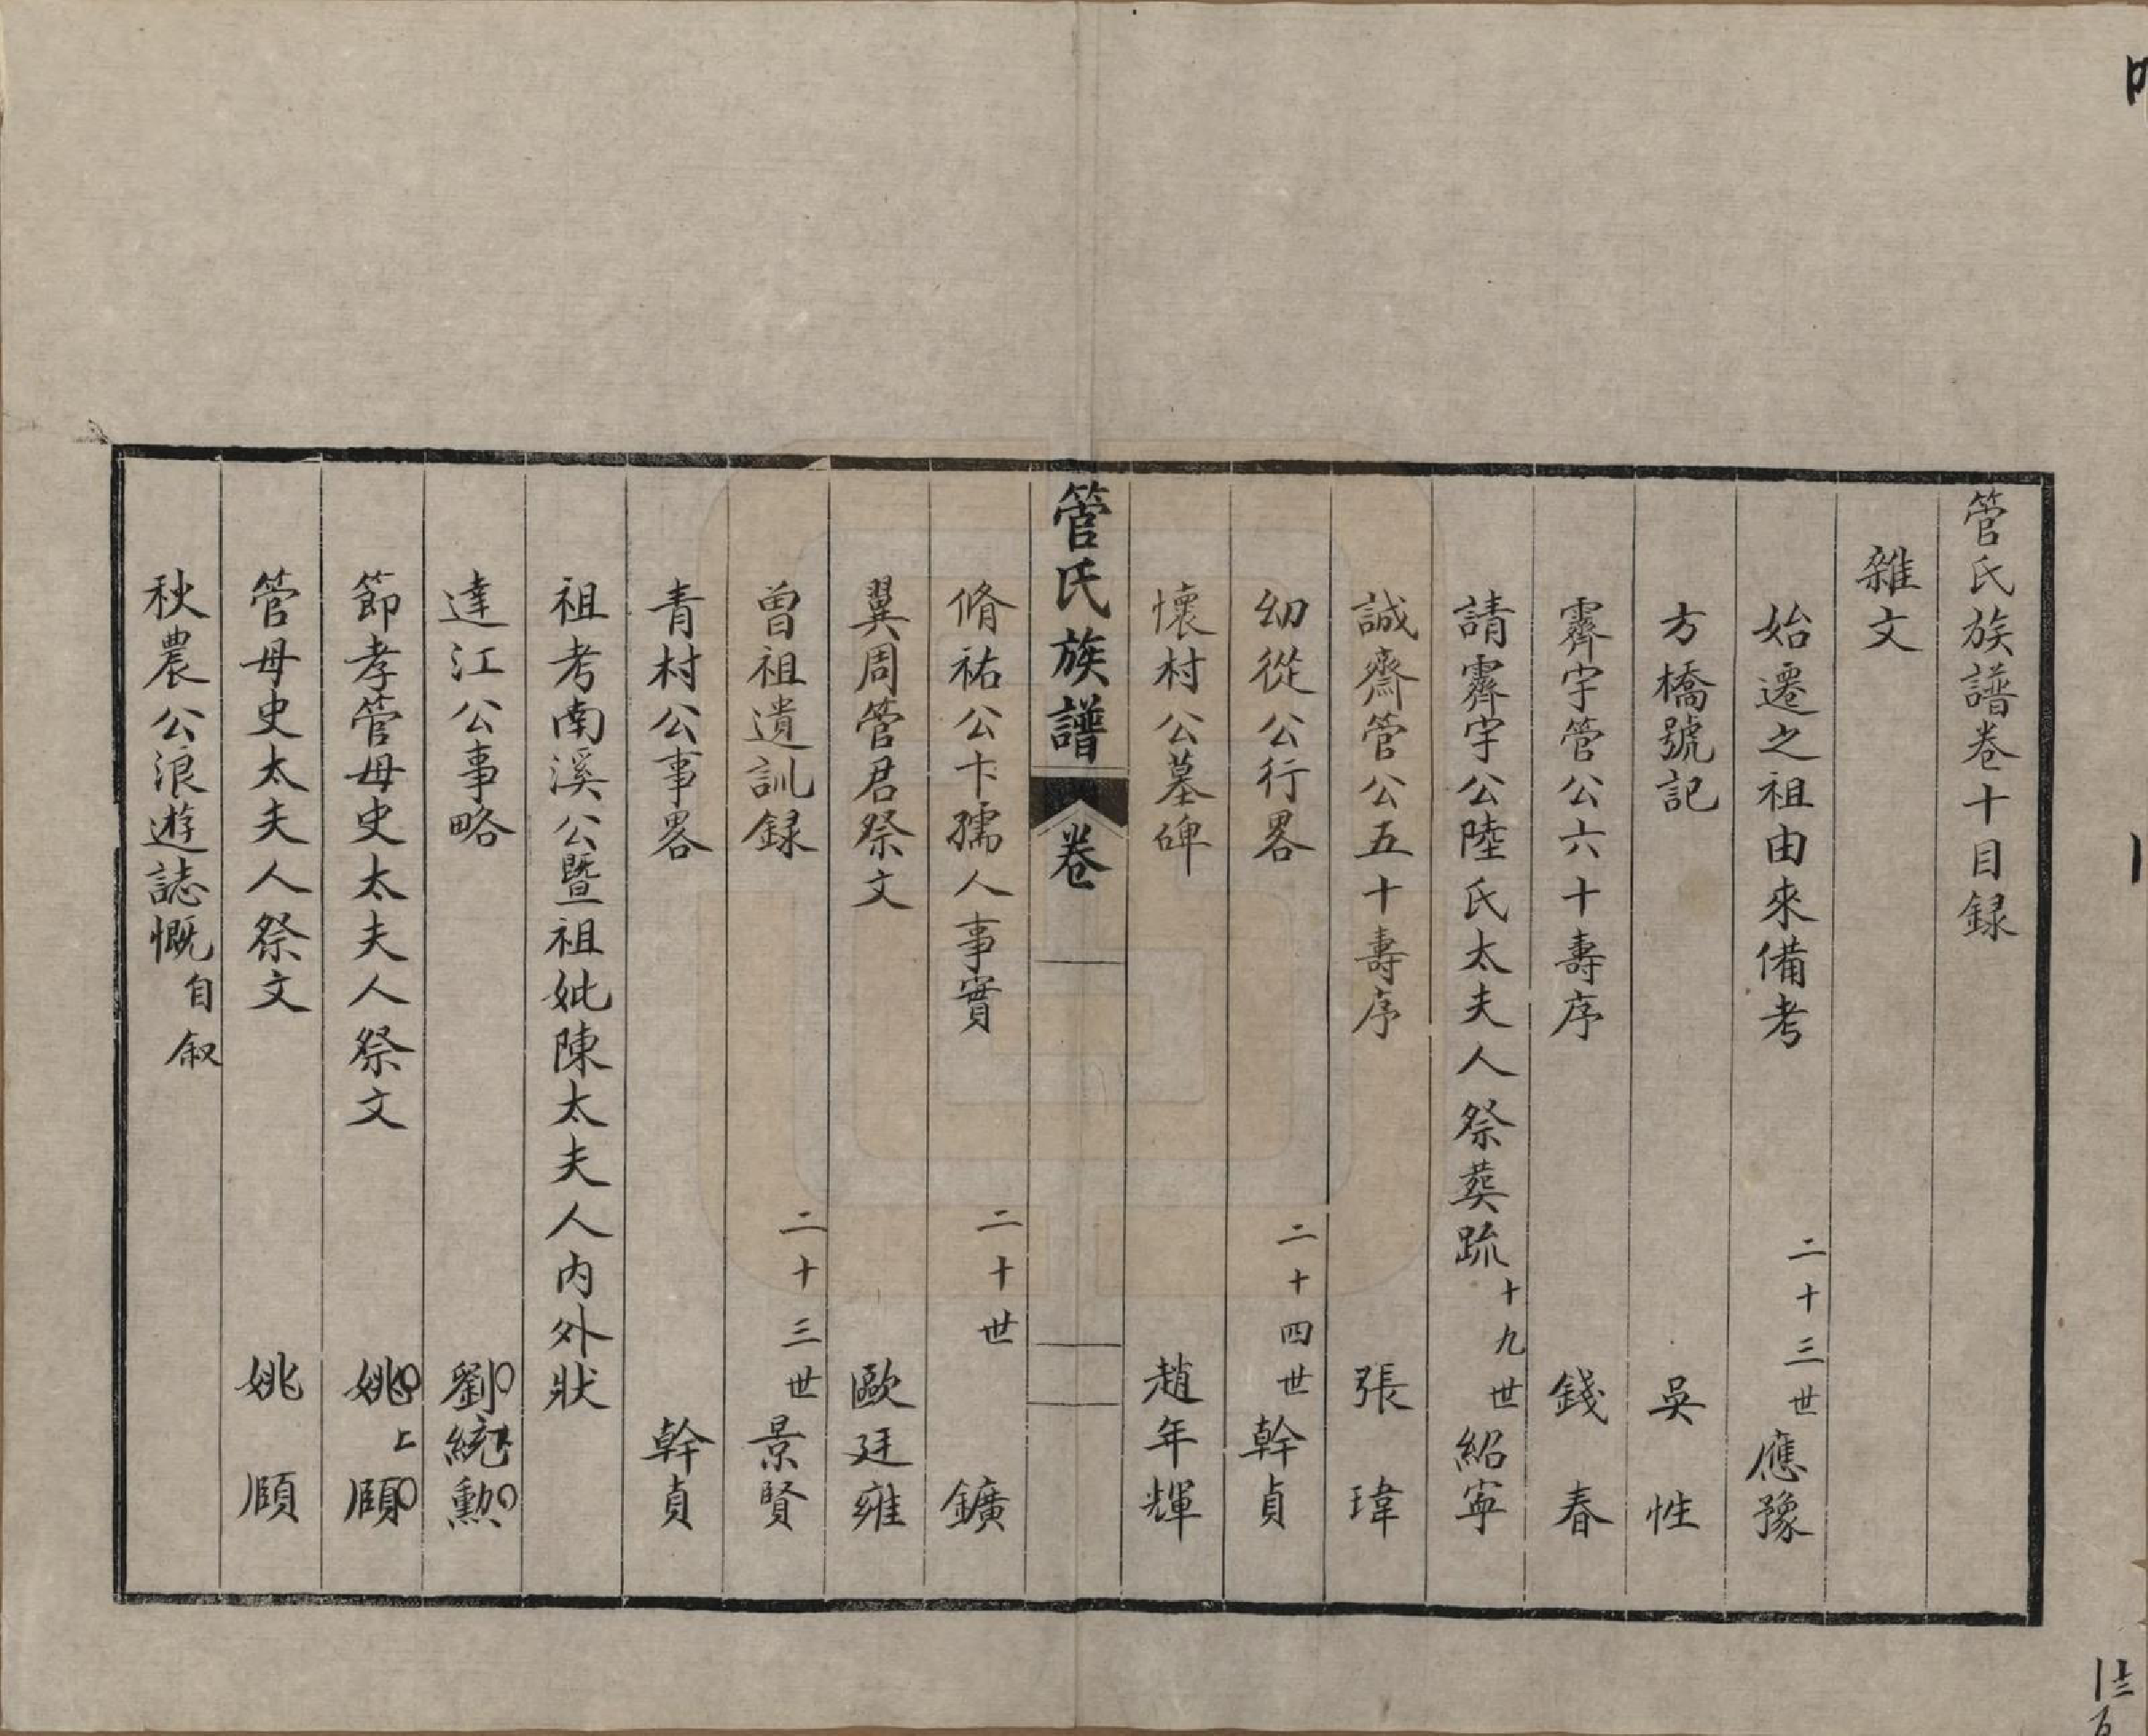 管氏族譜卷十目録
雜文
始遷之祖由來備考 二十三世 應豫
方橋號記 吳性
霽宇管公六十壽序 錢春
請霽宇公陸氏太夫人祭葬疏 十九世 紹寧
誠齋管公五十壽序 張瑋
幼從公行畧 二十四世 幹貞
懷村公墓碑 趙年輝
管氏族譜 卷
脩祐公卞孺人事實 二十世 鑛
翼周管君祭文 歐廷雍
曾祖遺訓録 二十三世 景賢
青村公事畧 幹貞
祖考南溪公暨祖妣陳太夫人内外狀
達江公事略 劉統勳
節孝管母史太夫人祭文 姚頤
管母史太夫人祭文 姚頤
秋農公浪遊誌慨 自叙